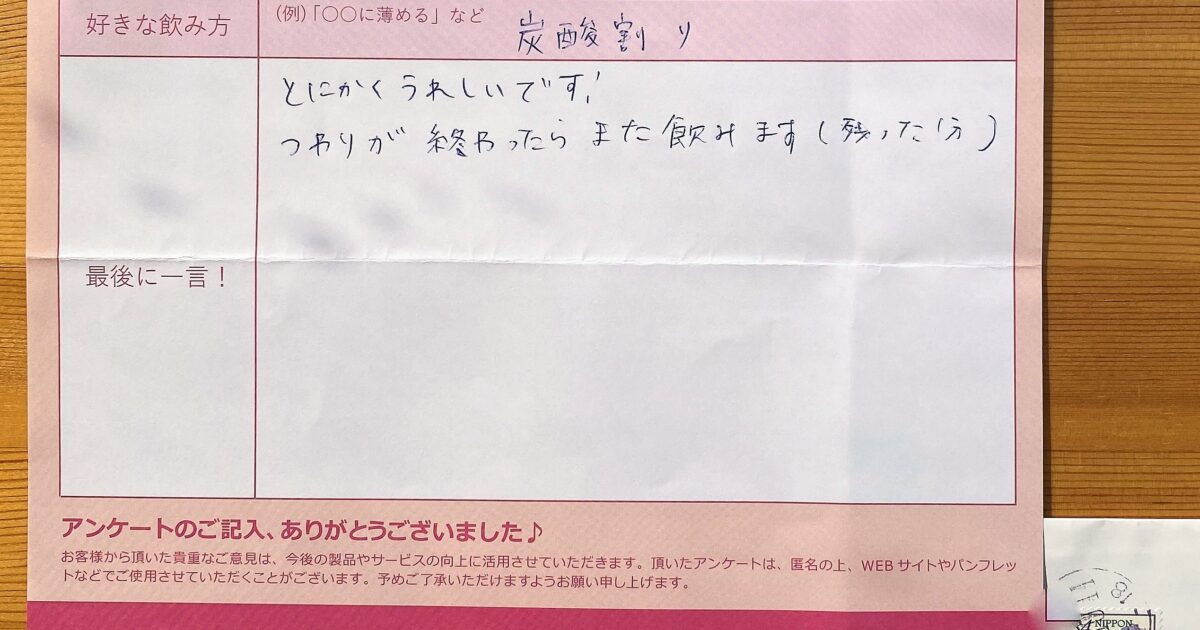 好きな飲み方
（例）「〇〇に薄める」など
炭酸割り
とにかくうれしいです！
つわりが終わったらまた飲みます（残った分）
最後に一言！
アンケートのご記入、ありがとうございました♪
お客様から頂いた貴重なご意見は、今後の製品やサービスの向上に活用させていただきます。頂いたアンケートは、匿名の上、WEB サイトやパンフレッ
トなどでご使用させていただくことがございます。予めご了承いただけますようお願い申し上げます。
NIPPON